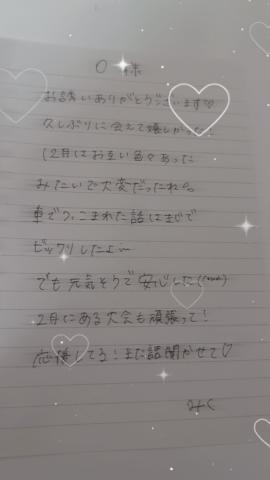 O 様
お誘いありがとうございます♡
久しぶりに会えて嬉しかった
12月はお互い色々あった
みたいで大変だったね
車でつっこまれた話はまじで
ビックリしたよ
でも元気そうで安心した
2月にある大会も頑張って!
応援してる!また話聞かせて♡